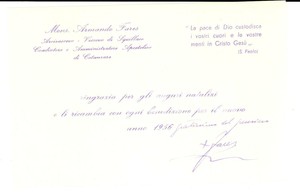 Mons. Armando Fares
Arcivescovo - Vescovo di Squillace
Coadiutore e Amministratore Apostolico
di Catanzaro
"La pace di Dio custodisca
i vostri cuori e le vostre
menti in Cristo Gesù „
(S. Paolo)
ringrazia per gli auguri natalizi
e li ricambia con ogni benedizione per il nuovo
anno 1956
+ Fares